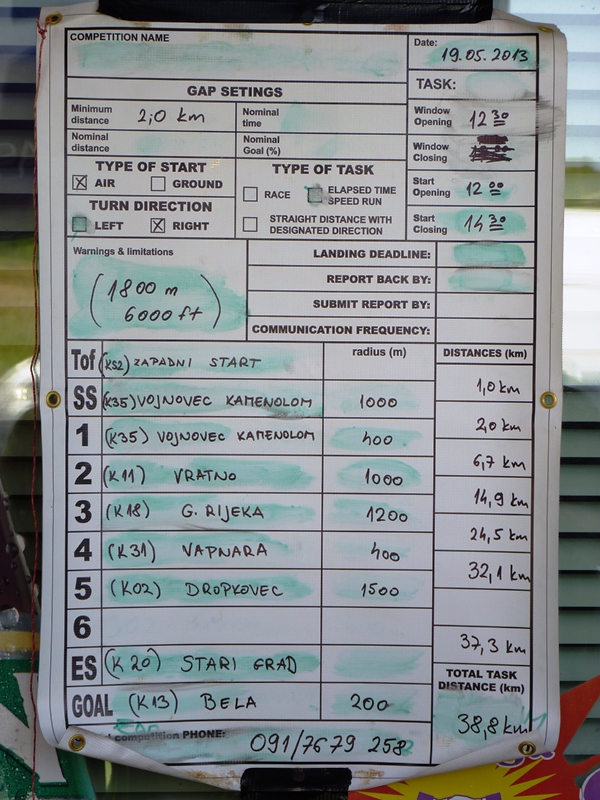 COMPETITION NAME
Date: 19.05.2013
TASK:
GAP SETINGS
Minimum distance 2,0 km
Nominal time
Nominal distance
Nominal Goal (%)
Window Opening 12 30
Window Closing
TYPE OF START
AIR GROUND
TURN DIRECTION
LEFT RIGHT
TYPE OF TASK
RACE ELAPSED TIME SPEED RUN
STRAIGHT DISTANCE WITH DESIGNATED DIRECTION
Start Opening 12 00
Start Closing 14 30
Warnings & limitations
(1800 m
6000 ft)
LANDING DEADLINE:
REPORT BACK BY:
SUBMIT REPORT BY:
COMMUNICATION FREQUENCY:
Tof (K52) ZAPADNI START radius (m) DISTANCES (km)
1,0 km
SS (K35) VOJNOVEC KAMENOLOM 1000
2,0 km
1 (K35) VOJNOVEC KAMENOLOM 400
6,7 km
2 (K11) VRATNO 1000
14,9 km
3 (K18) G. RIJEKA 1200
24,5 km
4 (K31) VAPNARA 400
32,1 km
5 (K02) DROPKOVEC 1500
6
37,3 km
ES (K20) STARI GRAD
TOTAL TASK DISTANCE (km)
GOAL (K13) BELA 200
38,8 km
competition PHONE: 091/7679 258